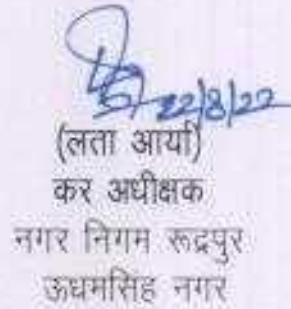 22/8/22
(लता आर्या)
कर अधीक्षक
नगर निगम रूद्रपुर
ऊधमसिंह नगर